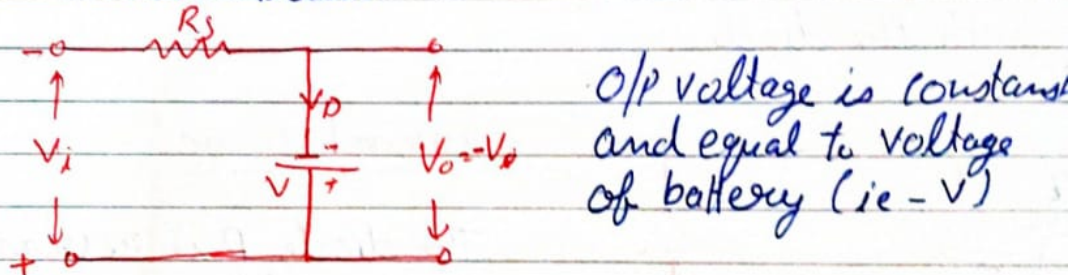 Rs
-
+
Vi
D
-
+
V
Vo=-V
O/P voltage is constant
and equal to voltage
of battery (ie - V)